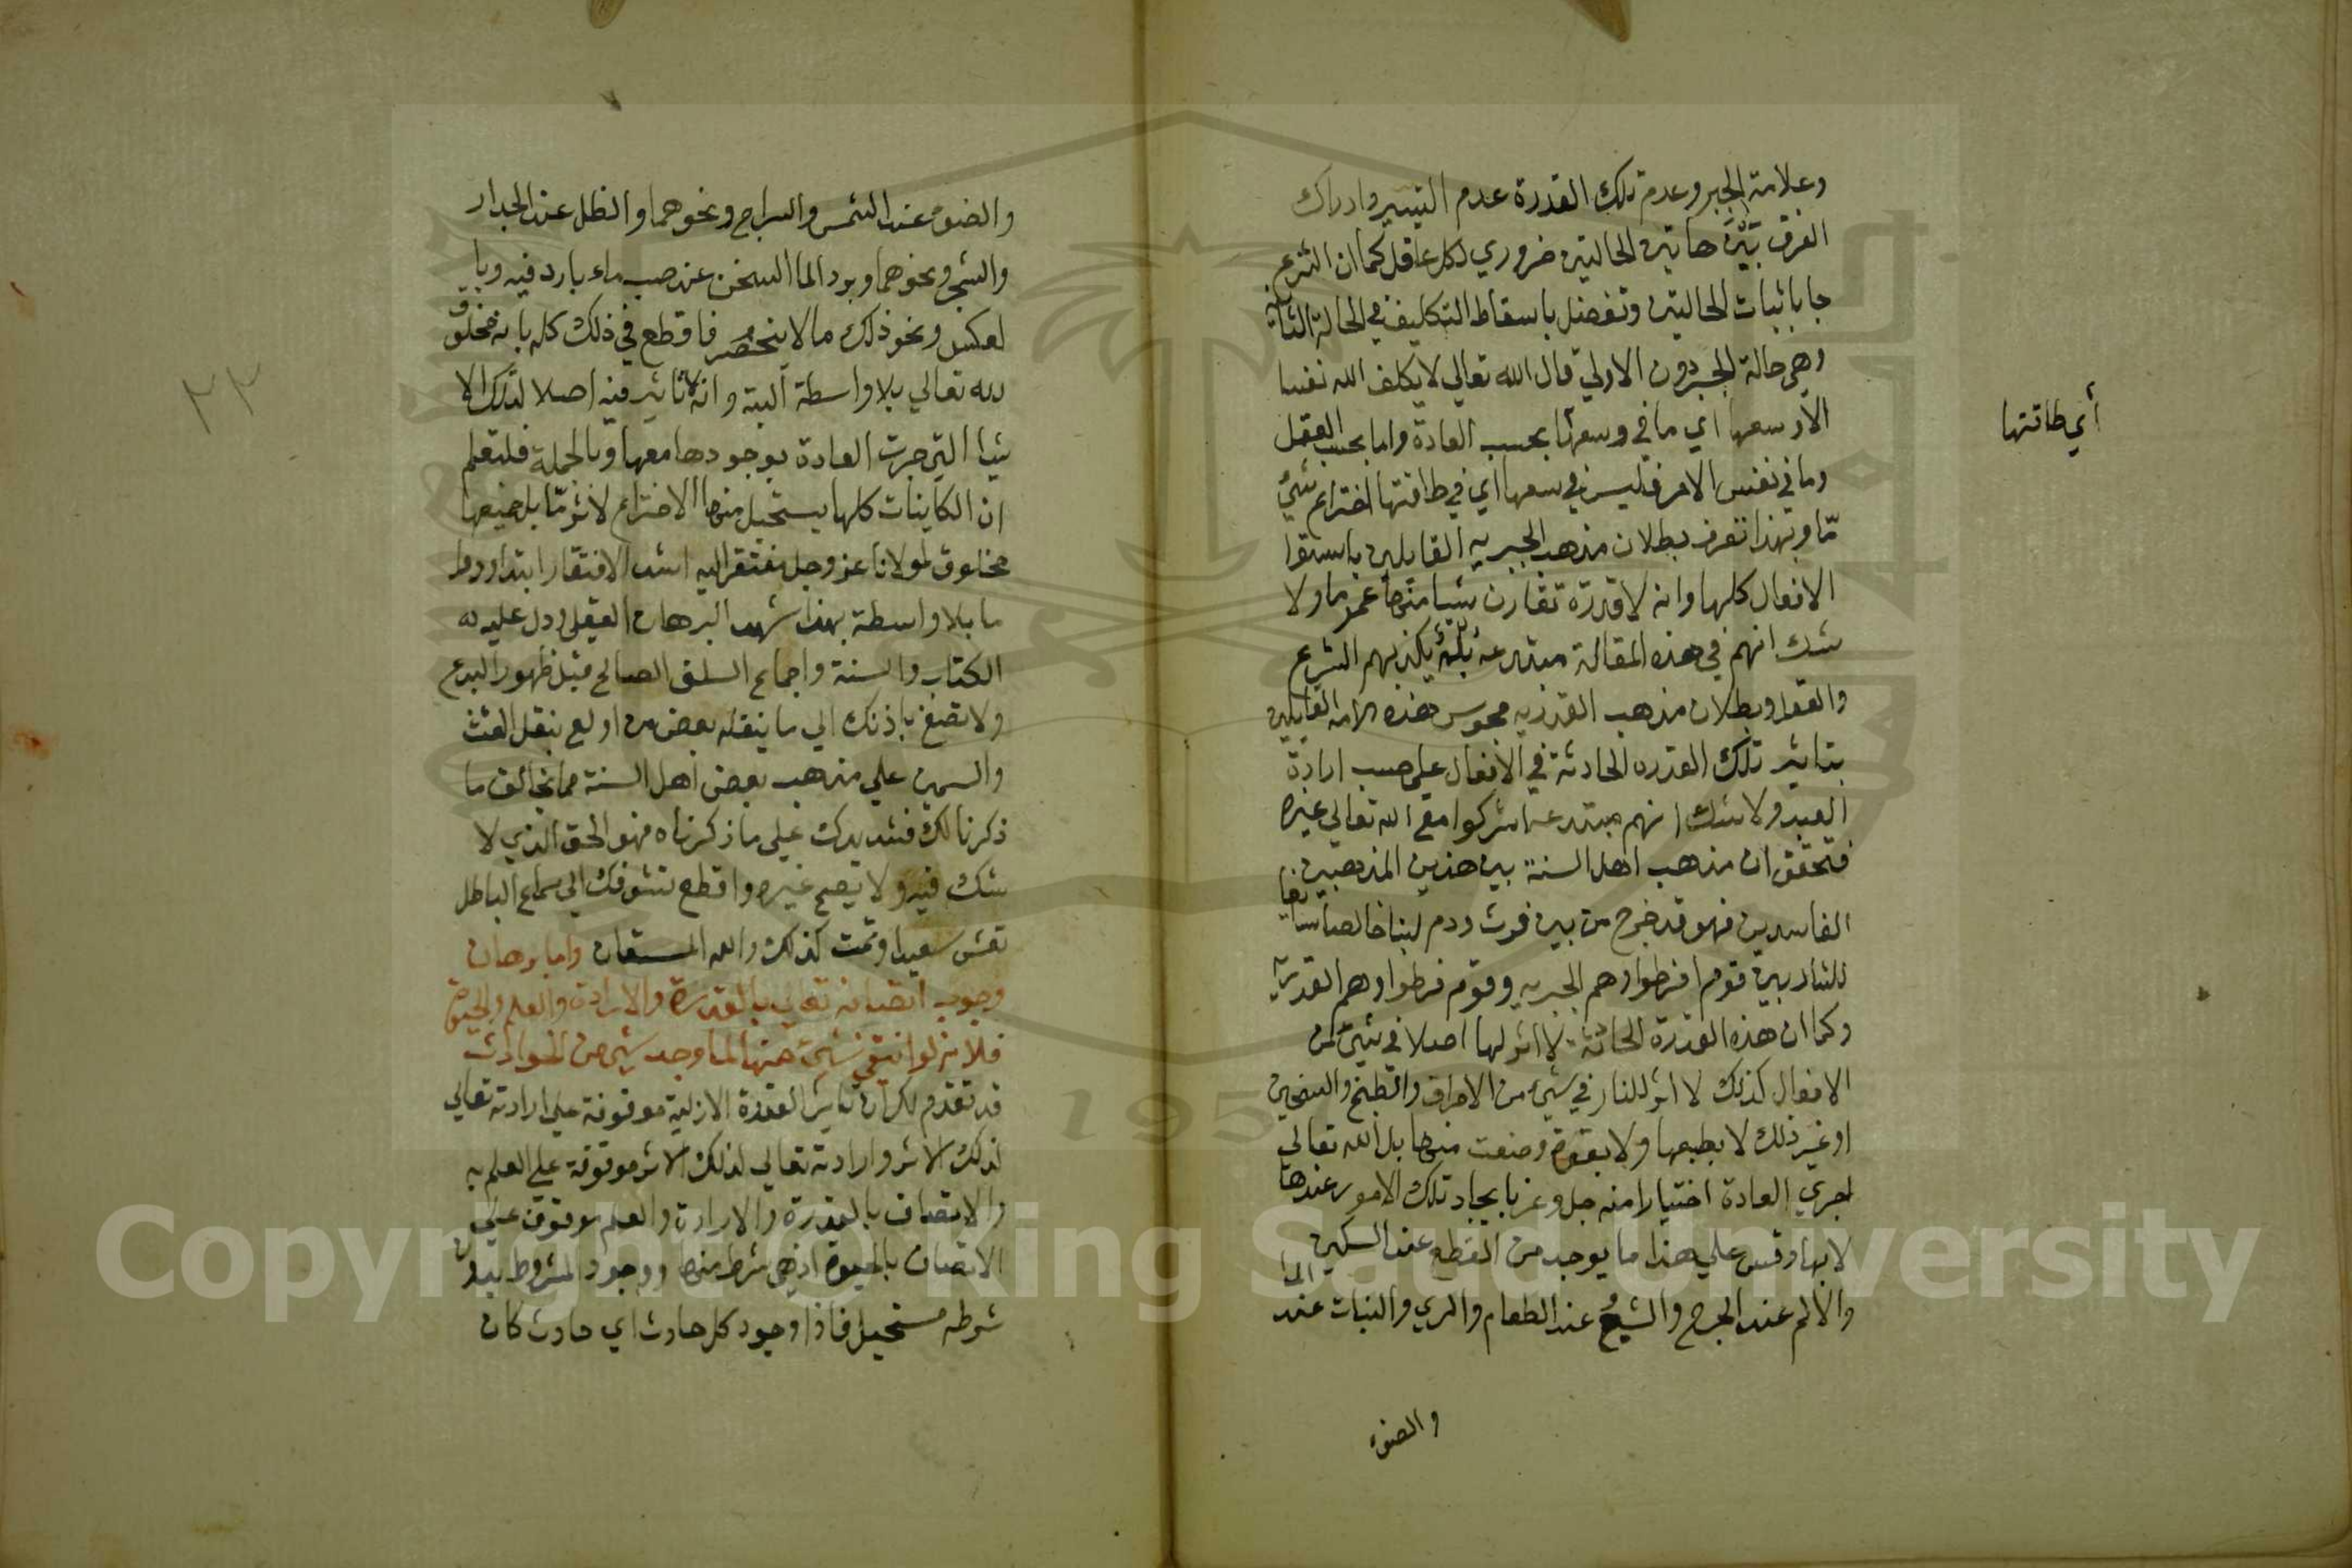 وعلامة الجبر وعدم تلك القدرة عدم التيسير وادراك
الفرق بين هاتين الحالتين ضروري لكل عاقل كما ان الشرع
جا باثبات الحالتين وتفضل باسقاط التكليف في الحالة الثانية
وهي حالة الجبر دون الاولي قال الله تعالي لا يكلف الله نفسا
الا وسعها اي ما في وسعها بحسب العادة واما بحسب العقل
أي طاقتها
وما في نفس الامر فليس في سعها اي في طاقتها اختراع شيء
مّا وبهذا تعرف بطلان مذهب الجبريه القايلين باستوا
الافعال كلها وانه لا قدرة تقارن شيا منها عموما ولا
شك انهم في هذه المقالة مبتدعه بله يكذبهم الشرع
والعقل وبطلان مذهب القدريه مجوس هذه الامه القايلين
بتاثير تلك القدره الحادثة في الافعال علي حسب ارادة
العبد ولا شك انهم مبتدعه اشركوا مع الله تعالي غيره
فتحقق ان مذهب اهل السنة بين هذين المذهبين
الفاسدين فهو قد خرج من بين فرث ودم لبنا خالصا سايغا
للشاربين قوم افرطوا وهم الجبريه وقوم فرطوا وهم القدرية
وكما ان هذه القدرة الحادثة لا اثر لها اصلا في شيئ من
الافعال كذلك لا اثر للنار في شيء من الاحراق والطبخ والتسخين
او غير ذلك لا بطبعها ولا بقوة وضعت منها بل الله تعالي
اجري العادة اختيارا منه جل وعز بايجاد تلك الامور عندها
لا بها وقس علي هذا ما يوجد من القطع عند السكين
والالم عند الجرح والشبع عند الطعام والري والنبات عند الما
والضوء
والضوء عند الشمس والسراج ونحوهما والظل عند الجدار
والشجر ونحوهما وبرد الما السخن عند صب ماء بارد فيه وبا
لعكس ونحو ذلك مالا ينحصر فاقطع في ذلك كله بانه مخلوق
لله تعالي بلا واسطة البته وانه لا تاثير فيه اصلا لتلك الا
شيا التي جرت العادة بوجودها معها وبالجملة فلتعلم
ان الكاينات كلها يستحيل منها الاختراع لاثر مّا بل جميعها
مخلوق لمولانا عز وجل مفتقر اليه اشد الافتقار ابتدا ودوا
ما بلا واسطة بهذا شهد البرهان العقلي ودل عليه
الكتاب والسنة واجماع السلف الصالح قبل ظهور البدع
ولا تصغ باذنك الي ما ينقله بعض من اولع بنقل الغث
والسمين علي مذهب بعض اهل السنة مما يخالف ما
ذكرنا لك فشد يدك علي ما ذكرناه فهو الحق الذي لا
شك فيه ولا يصح غيره واقطع تشوفك الي سماع الباطل
تعش سعيدا وتمت كذلك والله المستعان واما برهان
وجوب اتصافه تعالي بالقدرة والارادة والعلم والحيوة
فلانه لو انتفي شيئ منها لما وجد شيء من الحوادث
قد تقدم لك ان تاثير القدرة الازلية موقوفة علي ارادته تعالي
لذلك الاثر وارادته تعالي لذلك الاثر موقوفة علي العلم به
والاتصاف بالقدرة والارادة والعلم موقوف علي
الاتصاف بالحيوة اذ هي شرط منها ووجود المشروط بدون
شرطه مستحيل فاذا وجود كل حادث اي حادث كان
٢٣
Copyright © King Saud University
1957